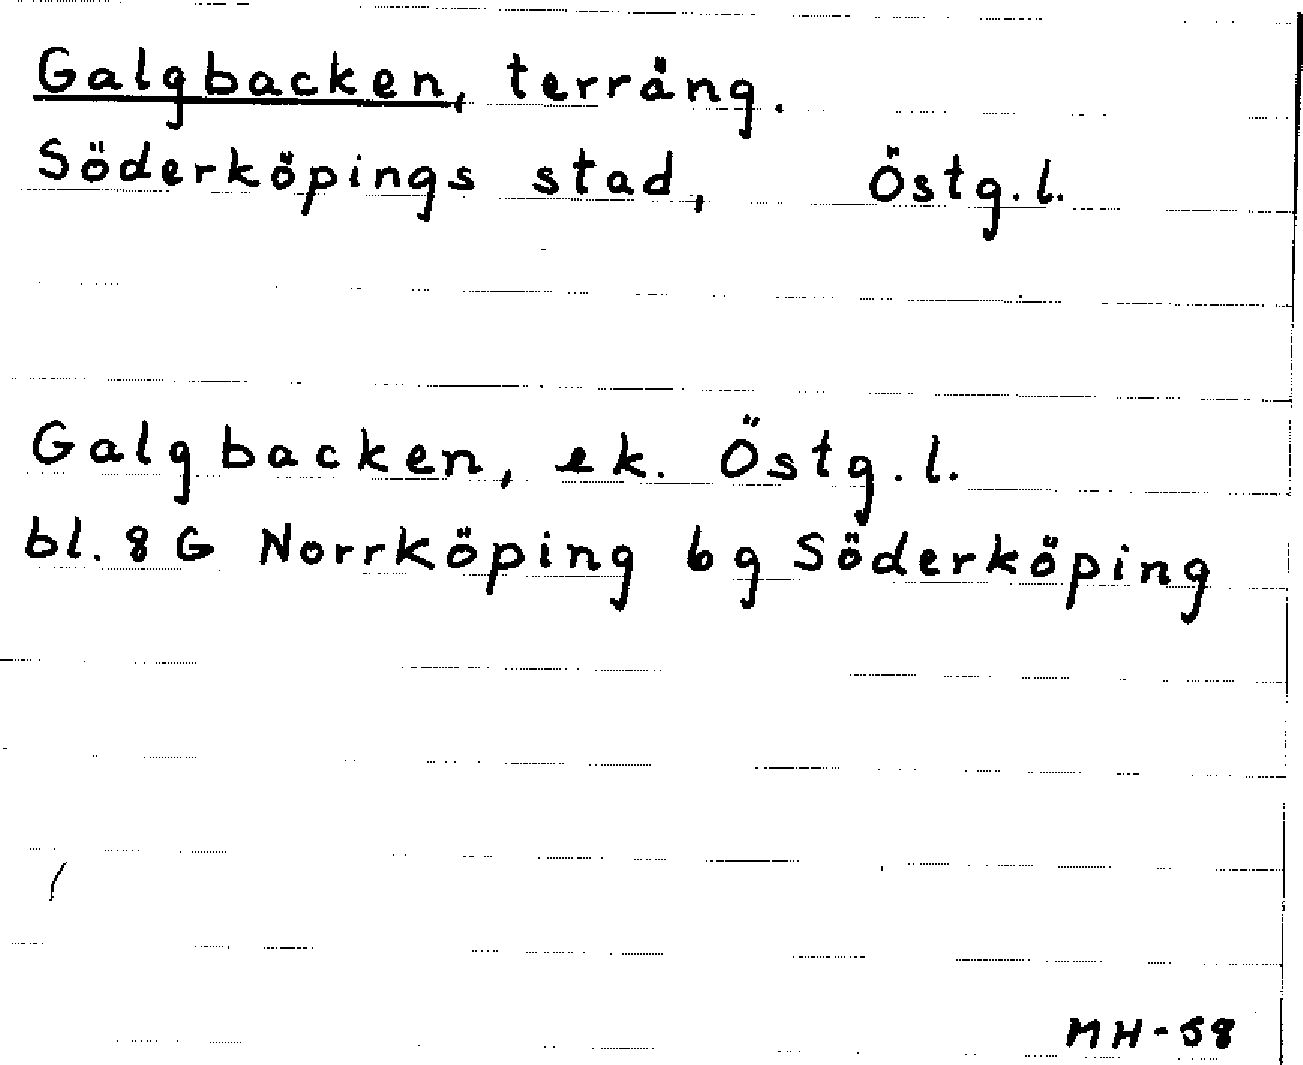 Galgbacken, terräng.
Söderköpings stad, Östg.l.
Galgbacken, ek. Östg.l.
bl. 8 G Norrköping 6g Söderköping
MH-58